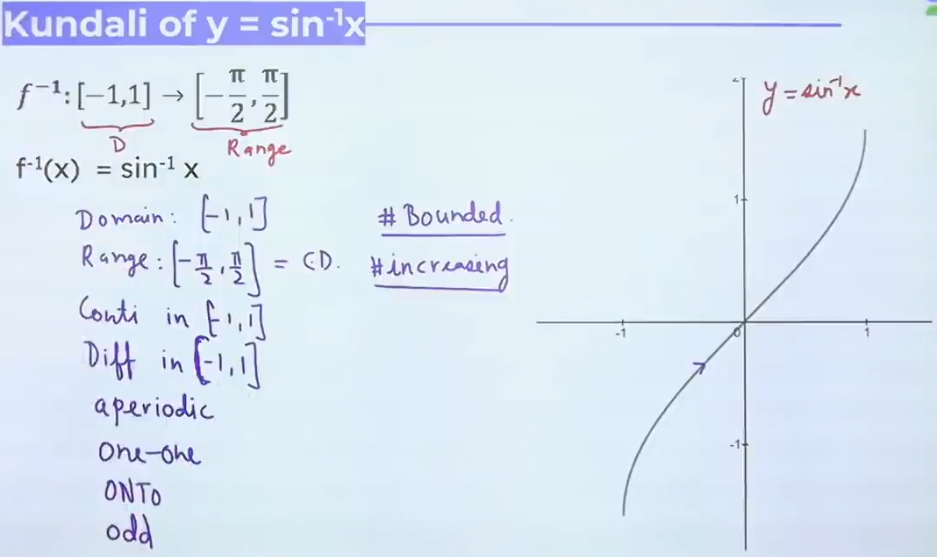 Kundali of y = sin⁻¹x
f⁻¹: [−1,1] → [−π/2, π/2]
D
Range
f⁻¹(x) = sin⁻¹ x
Domain: [-1,1]
Range: [-π/2, π/2] = CD.
Conti in [-1,1]
Diff in [-1,1]
aperiodic
one-one
ONTO
odd
# Bounded.
# increasing
y = sin⁻¹x
1
-1
0
1
-1